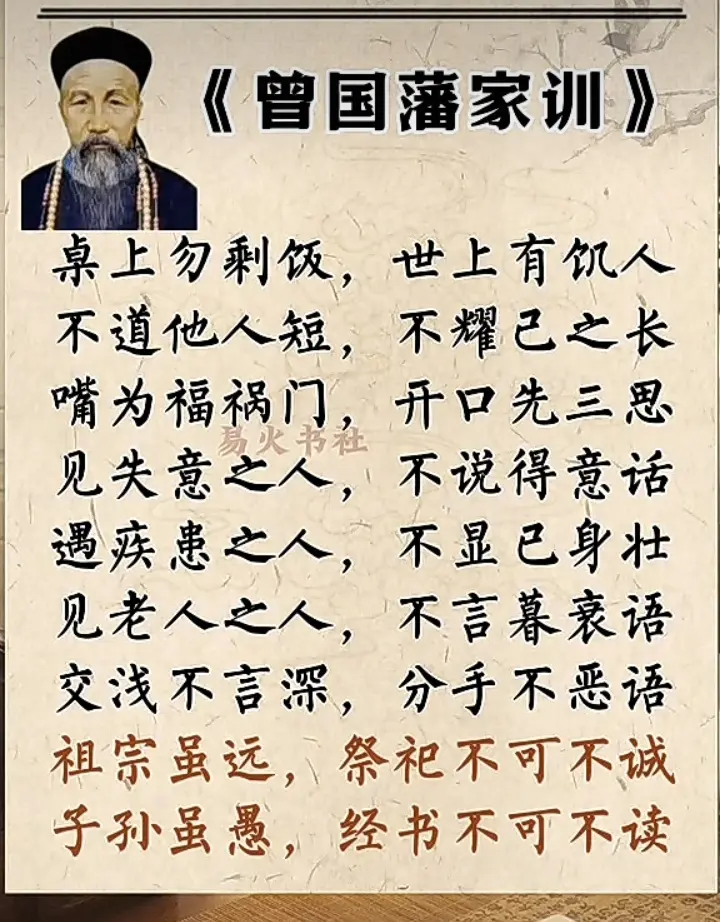 《曾国藩家训》
桌上勿剩饭，世上有饥人
不道他人短，不耀己之长
嘴为福祸门，开口先三思
易火书社
见失意之人，不说得意话
遇疾患之人，不显己身壮
见老人之人，不言暮衰语
交浅不言深，分手不恶语
祖宗虽远，祭祀不可不诚
子孙虽愚，经书不可不读